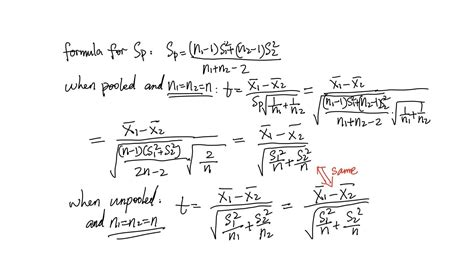 formula for Sp: Sp = (n₁-1)S₁²+(n₂-1)S₂² / n₁+n₂-2
when pooled and n₁=n₂=n: t = x̄₁-x̄₂ / Sp√(1/n₁+1/n₂) = x̄₁-x̄₂ / √((n₁-1)S₁²+(n₂-1)S₂² / n₁+n₂-2) · √(1/n₁+1/n₂)
= x̄₁-x̄₂ / √((n-1)(S₁²+S₂²) / 2n-2) √(2/n) = x̄₁-x̄₂ / √(S₁²/n + S₂²/n)
same
when unpooled: t = x̄₁-x̄₂ / √(S₁²/n₁ + S₂²/n₂) = x̄₁-x̄₂ / √(S₁²/n + S₂²/n)
and n₁=n₂=n